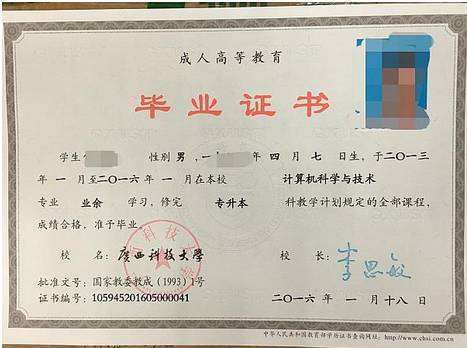 成人高等教育
毕业证书
学生 性别 男，一 年 四 月 七 日生，于二〇一三
年 一 月至二〇一六年 一 月在本校 计算机科学与技术
专业 业余 学习，修完 专升本 科教学计划规定的全部课程，
成绩合格，准予毕业。
校 名： 广西科技大学 校 长： 李思敏
批准文号：国家教委教成（1993）1号
证书编号：105945201605000041 二〇一六年 一 月十八日
中华人民共和国教育部学历证书查询网址：http://www.chsi.com.cn